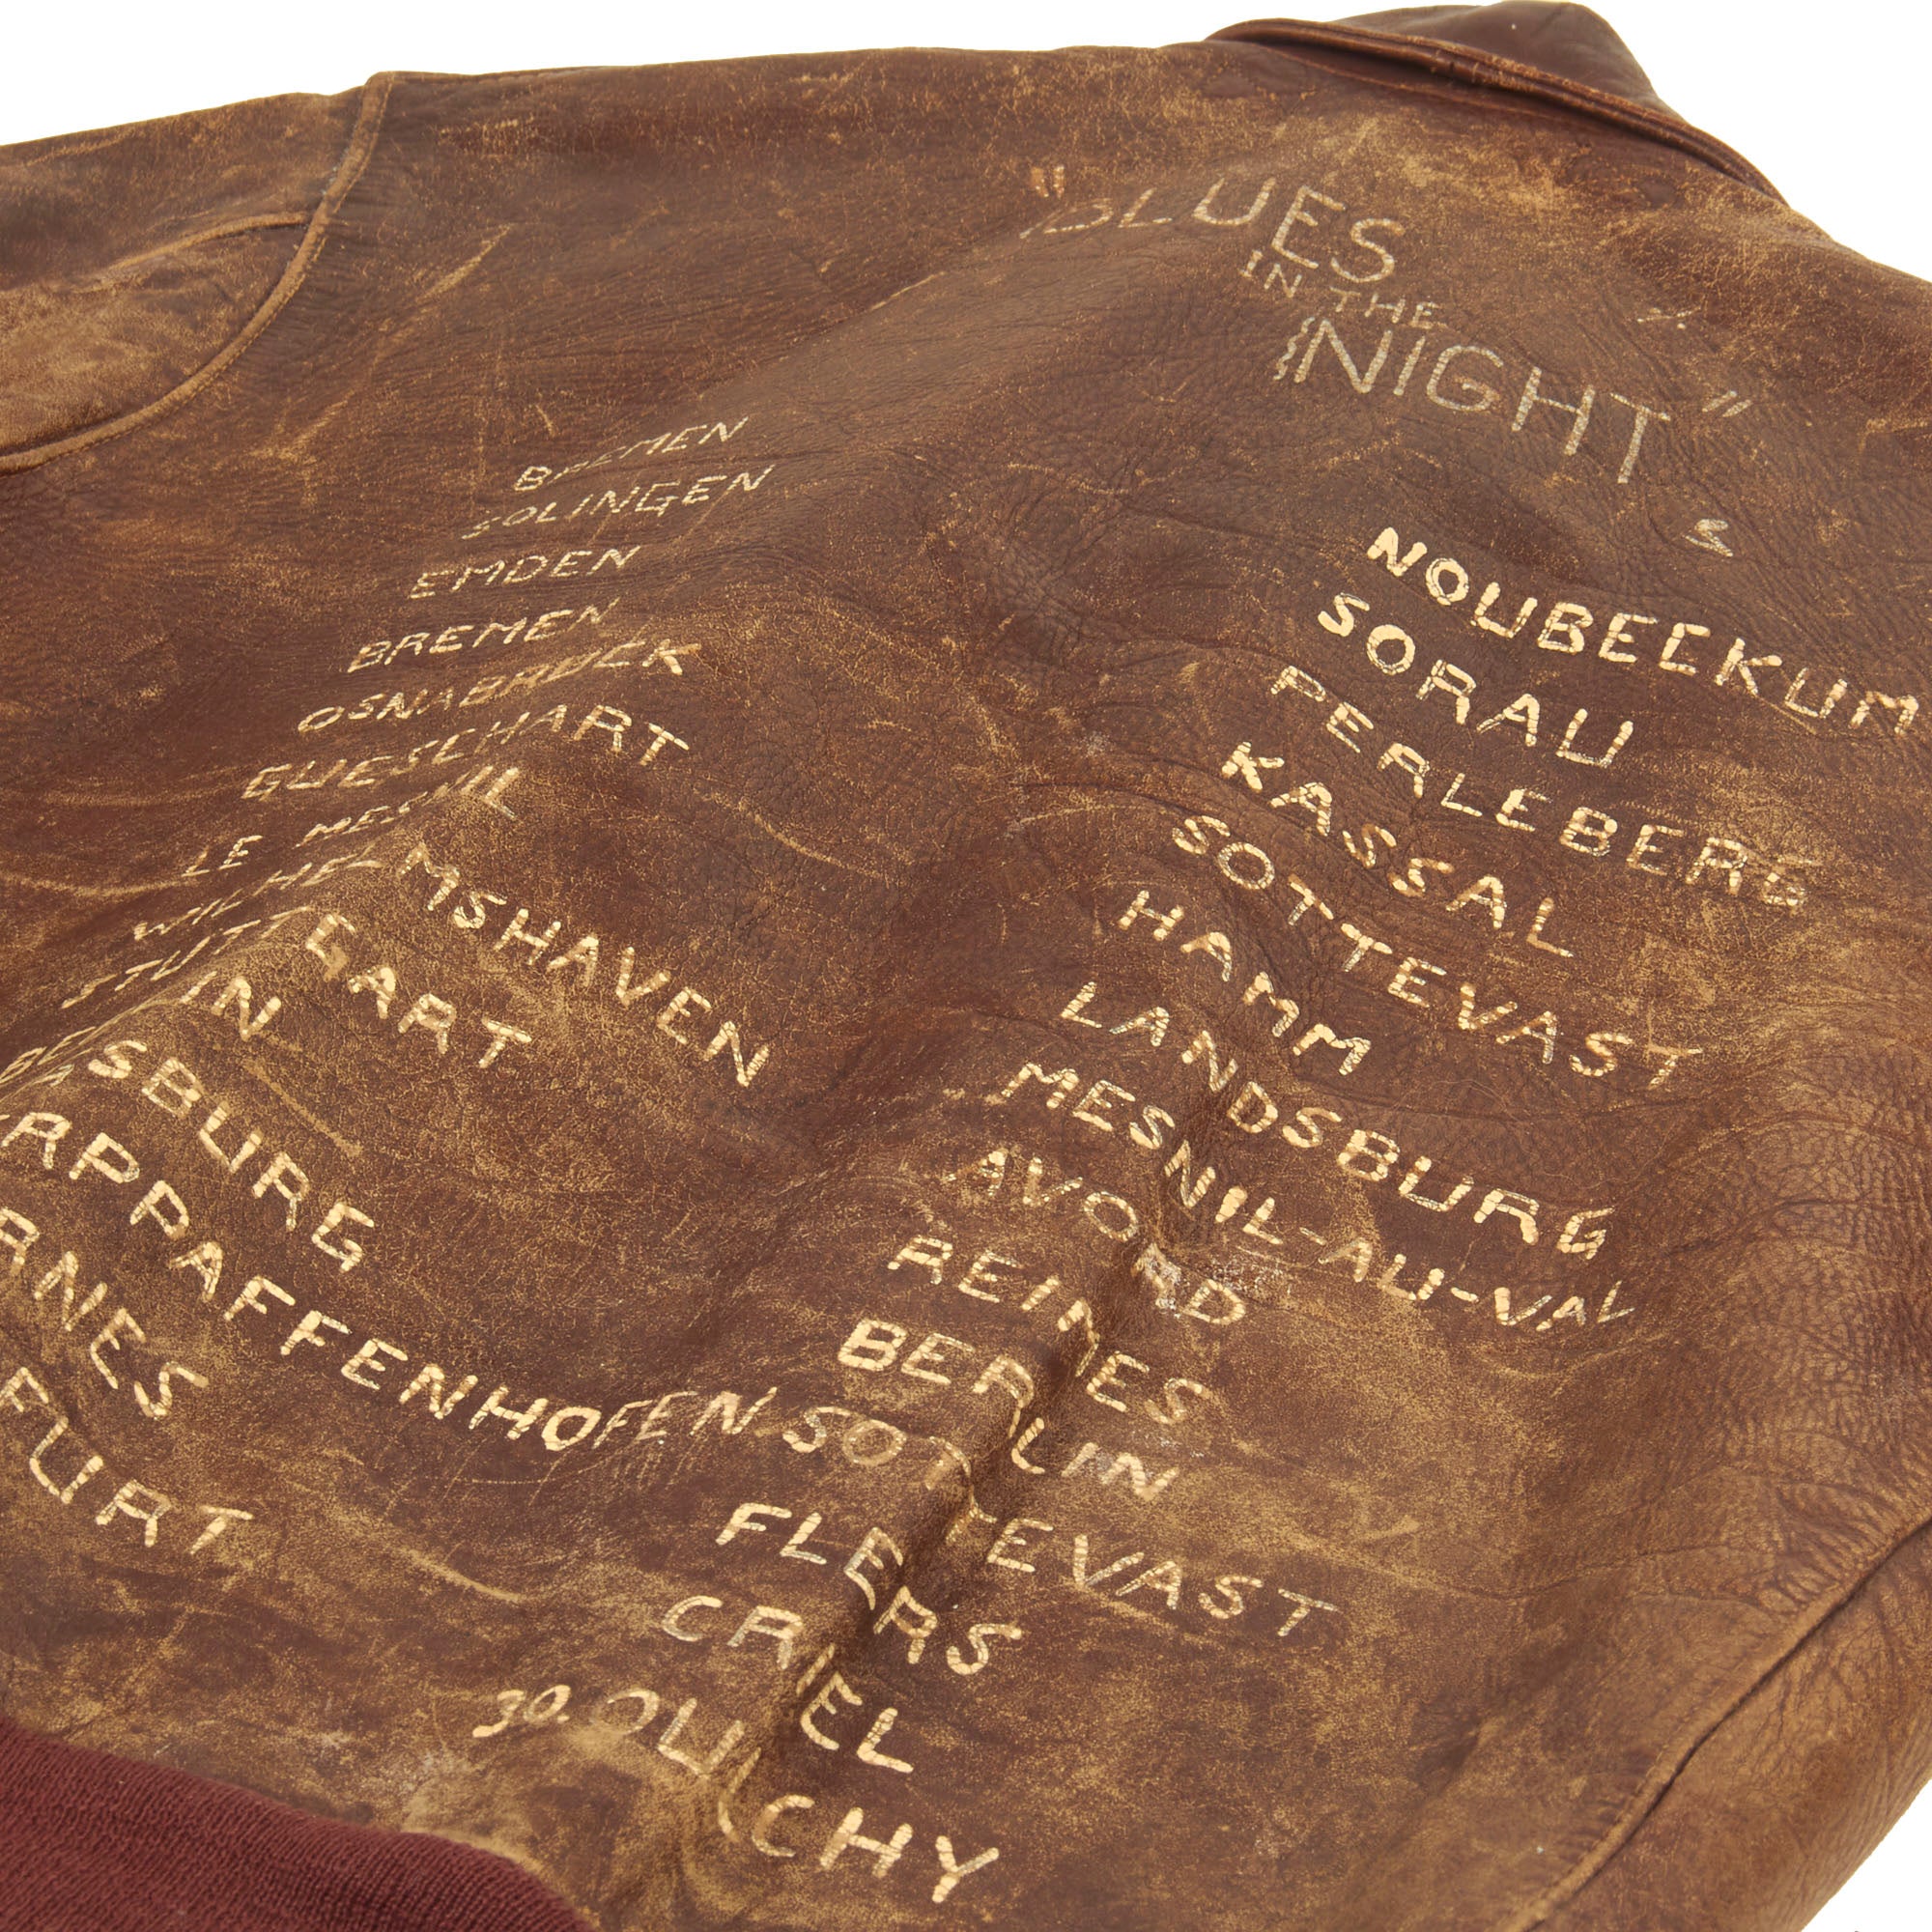 "BLUES
IN THE
NIGHT"
BREMEN
SOLINGEN
EMDEN
BREMEN
OSNABRUCK
GUESCHART
LE MESNIL
WILHELMSHAVEN
STUTTGART
BERLIN
SBURG
RPPAFFENHOFEN
RNES
FURT
S
NOUBECKUM
SORAU
PERLEBERG
KASSAL
SOTTEVAST
HAMM
LANDSBURG
MESNIL-AU-VAL
AVORD
REIMES
BERLIN
SOTTEVAST
FLERS
CRIEL
30. OUICHY